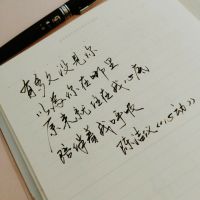 有多久没见你
以为你在哪里
原来就住在我心底
陪伴着我呼吸
陈洁仪《心动》